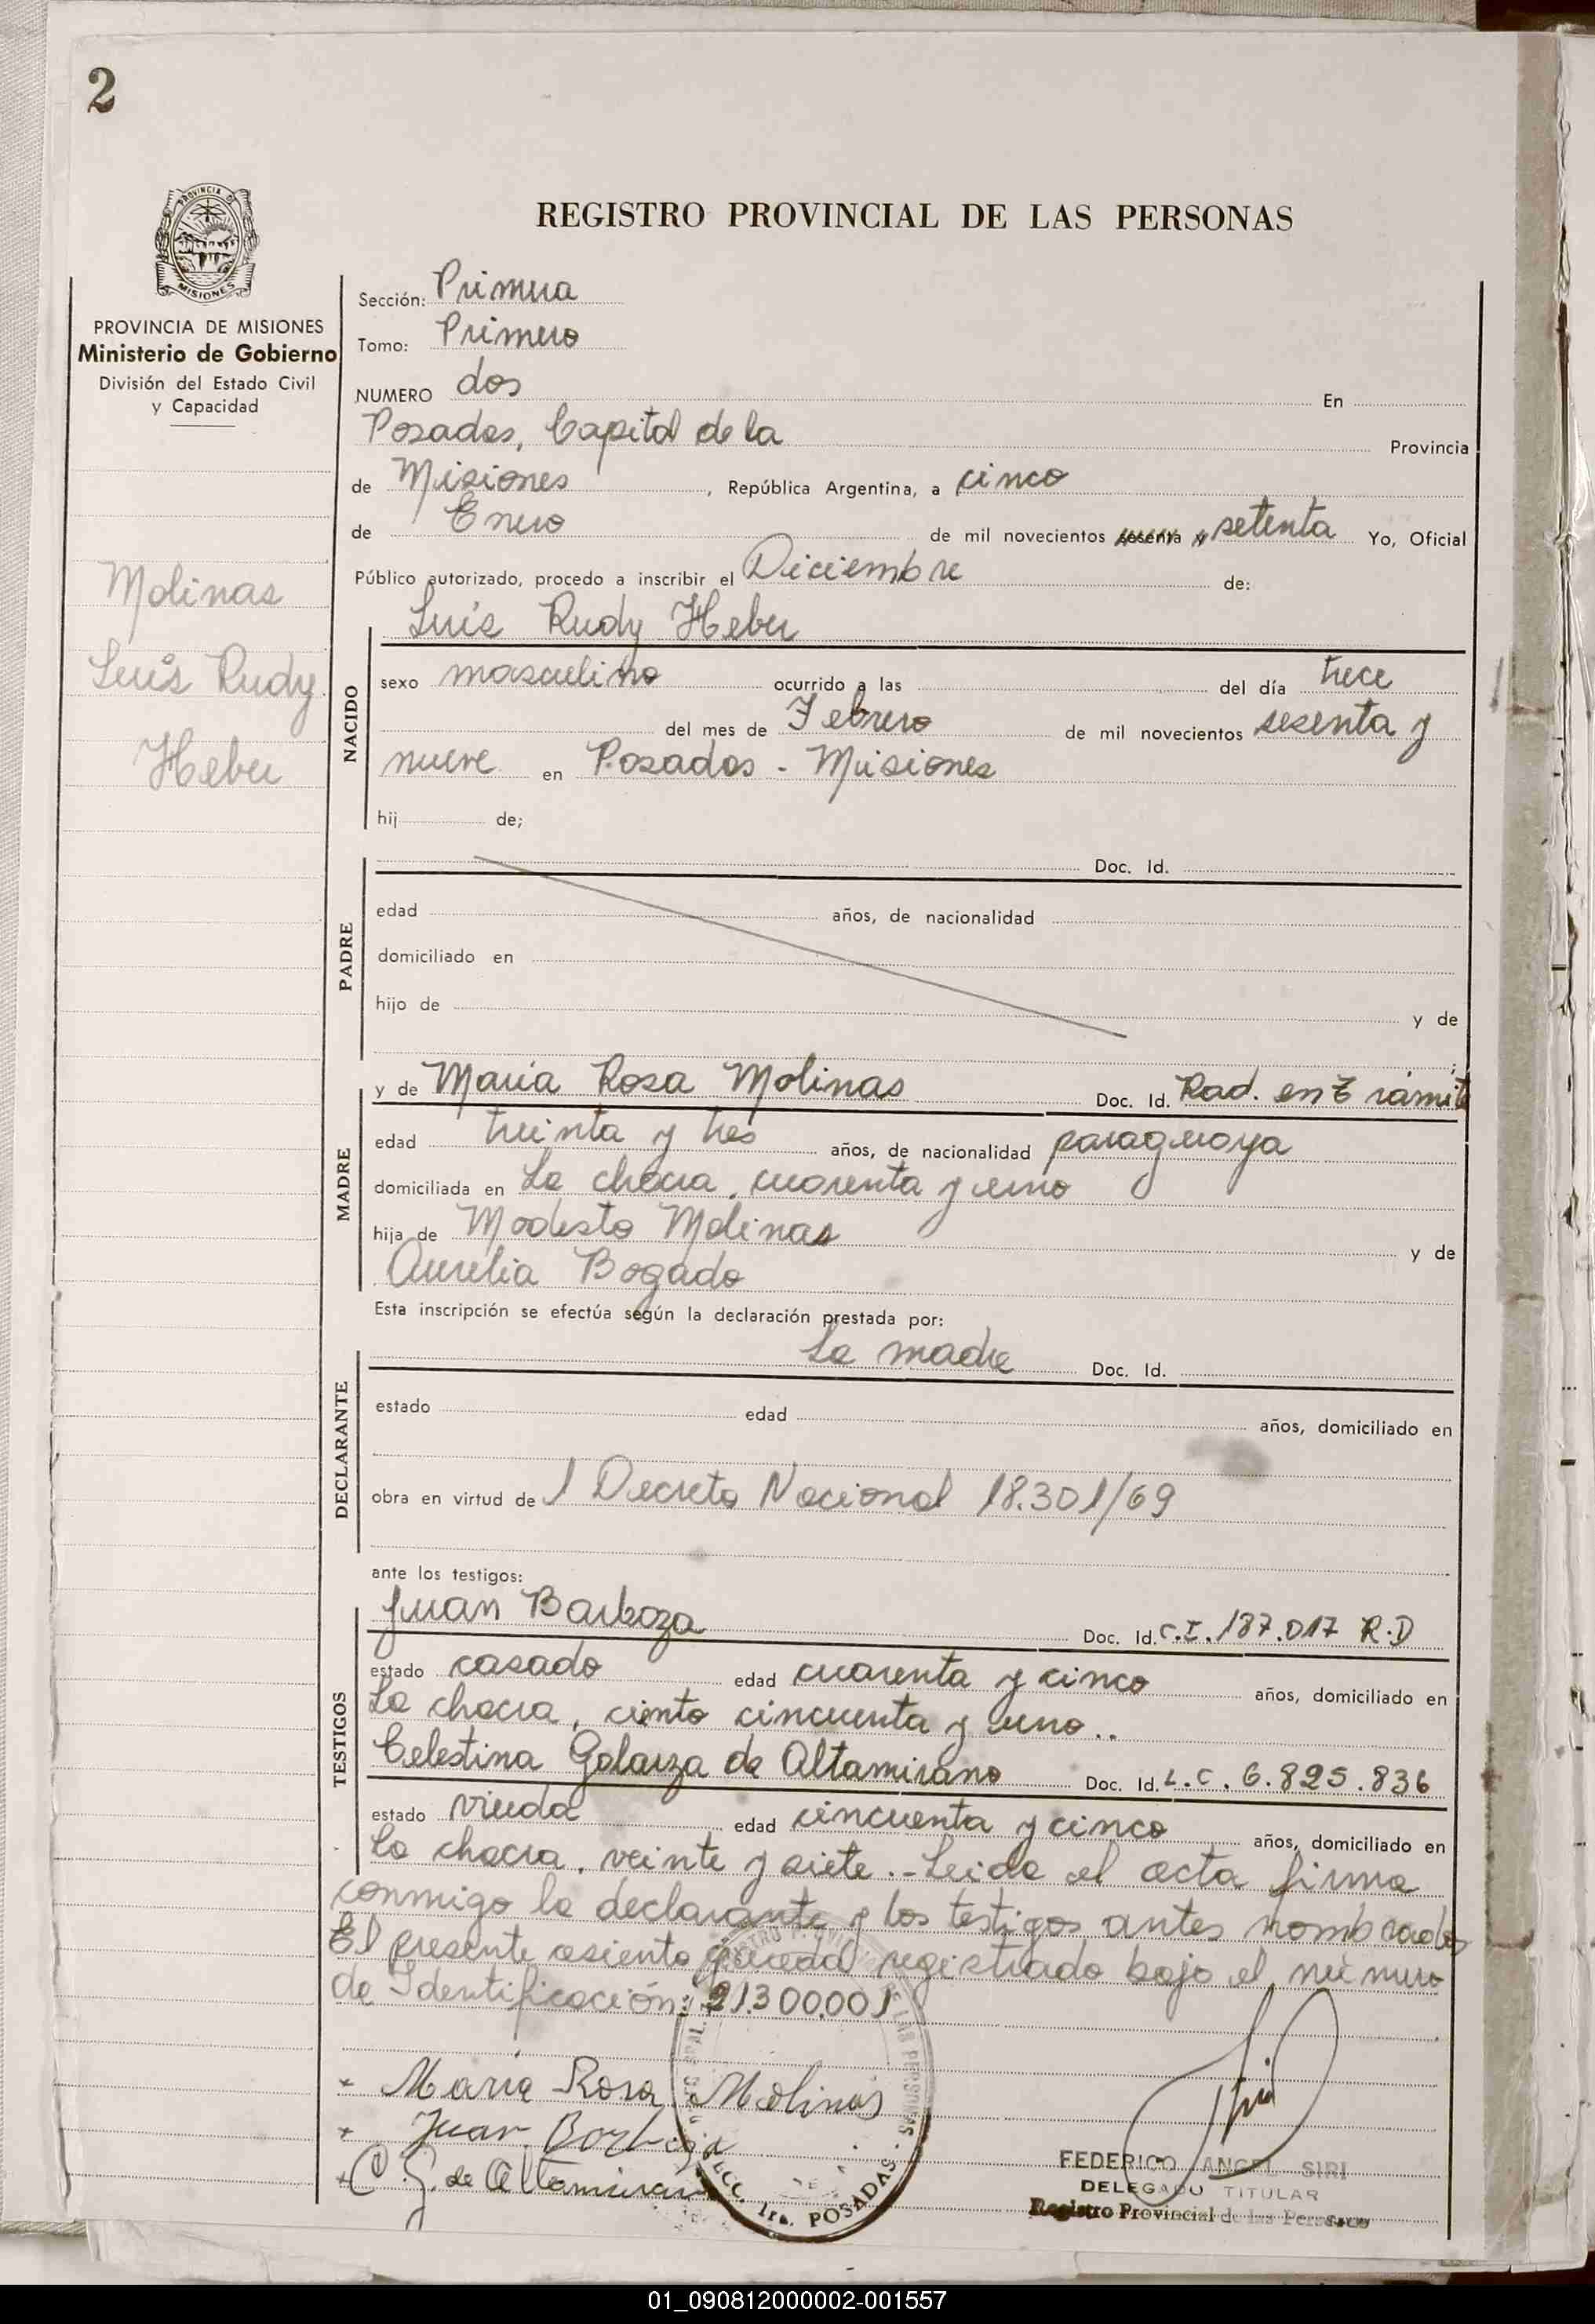 2
REGISTRO PROVINCIAL DE LAS PERSONAS
PROVINCIA DE MISIONES
Ministerio de Gobierno
División del Estado Civil
y Capacidad
Molinas
Luis Rudy
Heber
Sección: Primera
Tomo: Primero
NUMERO dos En
Posadas, Capital de la Provincia
de Misiones, República Argentina, a cinco
de Enero de mil novecientos sesenta y setenta Yo, Oficial
Público autorizado, procedo a inscribir el Diciembre de:
Luis Rudy Heber
NACIDO
sexo masculino ocurrido a las del día trece
del mes de Febrero de mil novecientos sesenta y
nueve en Posadas - Misiones
hij de;
PADRE
Doc. Id.
edad años, de nacionalidad
domiciliado en
hijo de y de
;
MADRE
y de María Rosa Molinas Doc. Id. Rad. en Trámite
edad treinta y tres años, de nacionalidad paraguaya
domiciliada en La chacra, cuarenta y uno
hija de Modesto Molinas y de
Aurelia Bogado
Esta inscripción se efectúa según la declaración prestada por:
DECLARANTE
La madre Doc. Id.
estado edad años, domiciliado en
obra en virtud de l Decreto Nacional 18.301/69
ante los testigos:
TESTIGOS
Juan Barboza Doc. Id. C.I. 187.017 R.D
estado casado edad cuarenta y cinco años, domiciliado en
La chacra, ciento cincuenta y uno..
Celestina Galarza de Altamirano Doc. Id. L.C. 6.825.836
estado viuda edad cincuenta y cinco años, domiciliado en
La chacra, veinte y siete.- Leida el acta firma
conmigo la declarante y los testigos antes nombrados
El presente asiento queda registrado bajo el número
de Identificación: 21.300.001
María Rosa Molinas
Juan Borboza
C. G. de Altamirano
SECC. 1ra. POSADAS.
FEDERICO ANGEL SIRI
DELEGADO TITULAR
Registro Provincial de las Personas
01_090812000002-001557